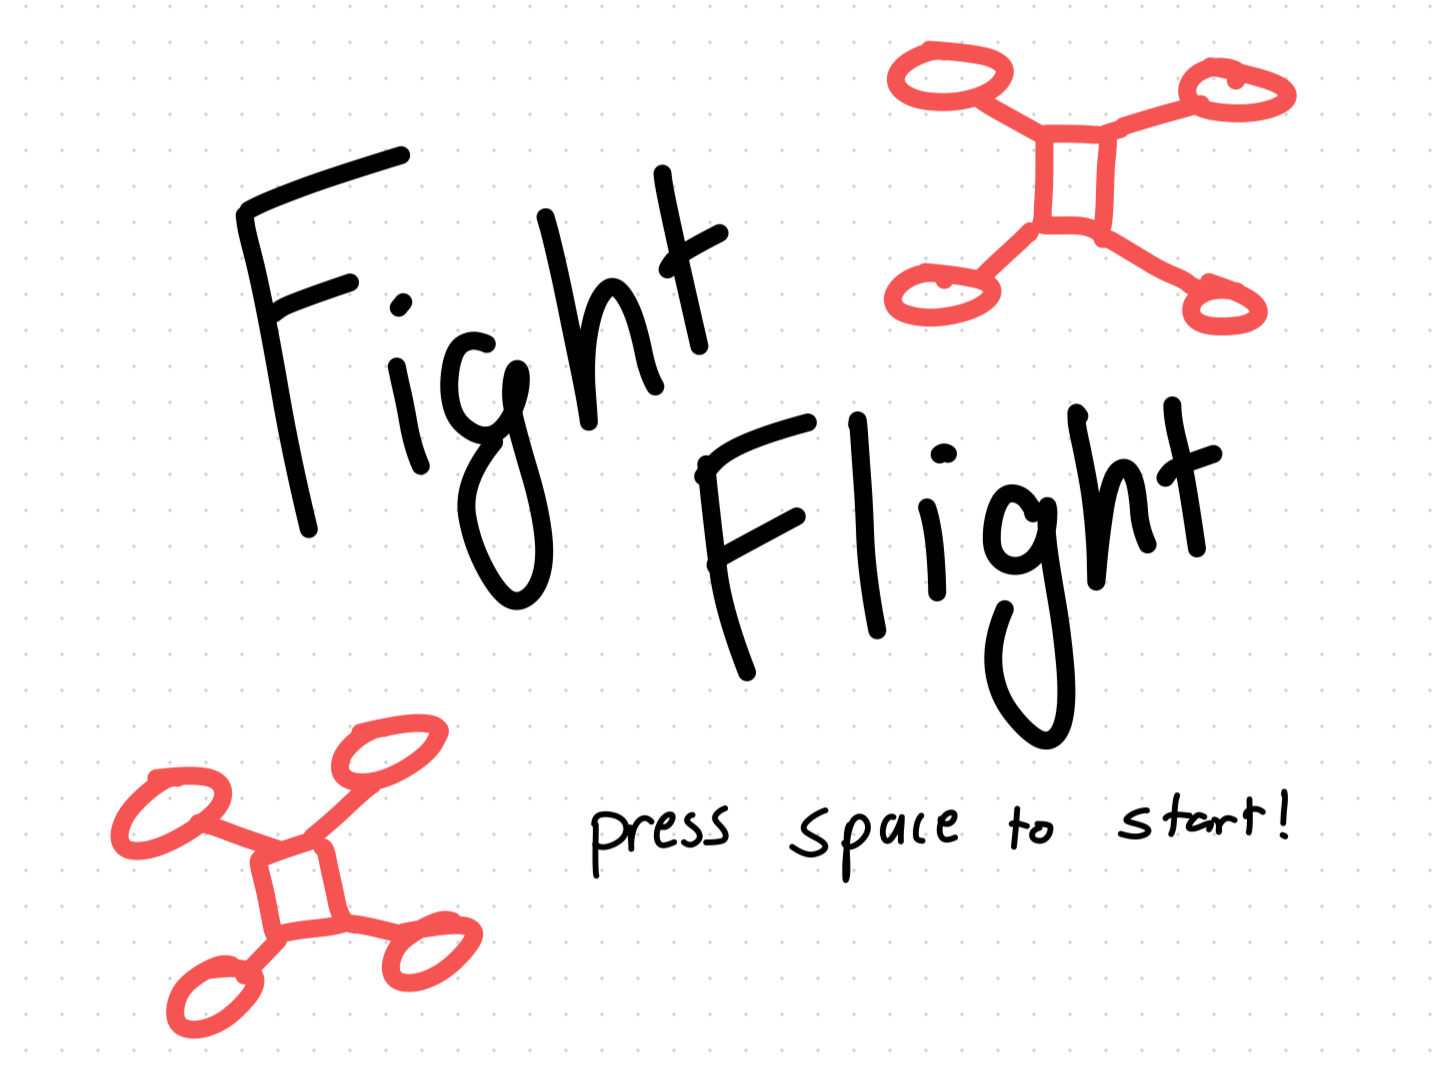 Fight
Flight
press space to start!